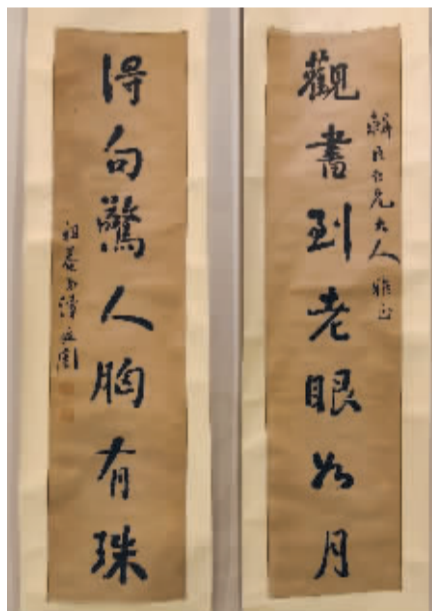 觀書到老眼如月
大人雅正
得句驚人胸有珠
祖菴弟譚延闓